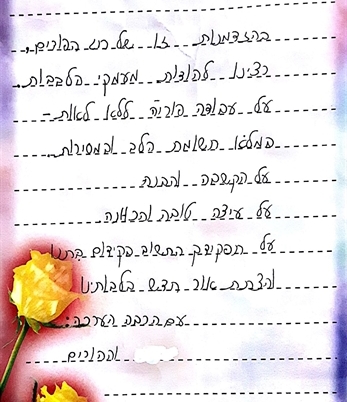 בהזדמנות זו של רוב הפורים,
רצינו להודות מעמקי הלבבות,
על עבודה פוריה ללא לאות -
המלאה תשומת הלב ומסירות,
על הקשבה והבנת
על עיצה טובה והכוונה
על תפקידך החשוב בקידום בתנו
והצתת אור חדש בלבותינו
עם הרבה הערכה:
וההורים